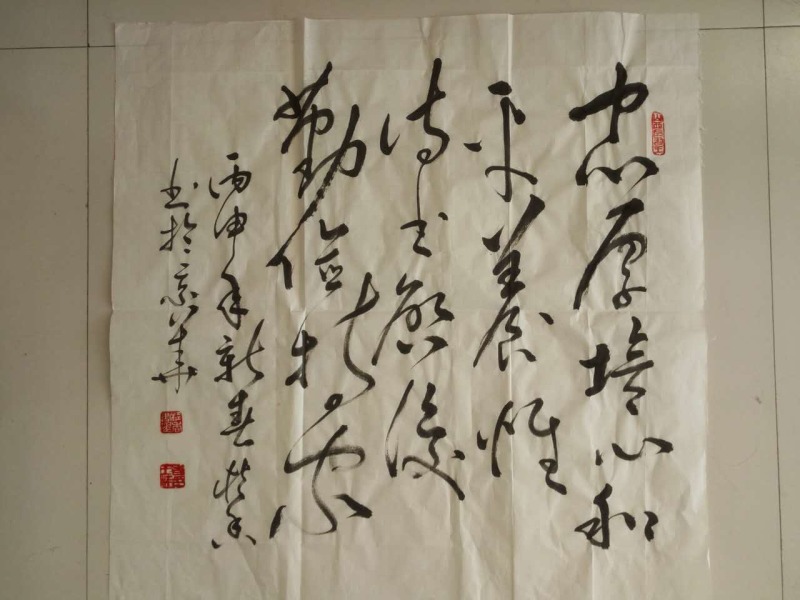 忠厚培心和
平養性
诗书啟後
勤俭持家
丙申年新春
书於京華